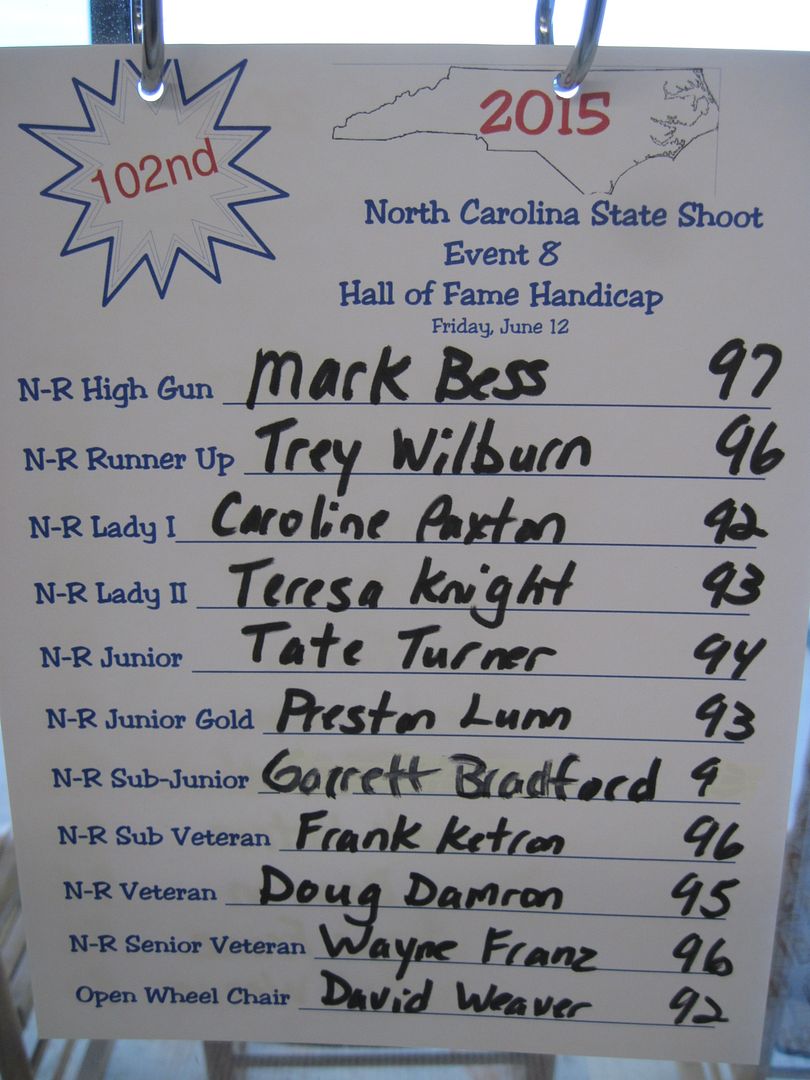 102nd
2015
North Carolina State Shoot
Event 8
Hall of Fame Handicap
Friday, June 12
N-R High Gun Mark Bess 97
N-R Runner Up Trey Wilburn 96
N-R Lady I Caroline Paxton 92
N-R Lady II Teresa Knight 93
N-R Junior Tate Turner 94
N-R Junior Gold Preston Lunn 93
N-R Sub-Junior Garrett Bradford 9
N-R Sub Veteran Frank Ketron 96
N-R Veteran Doug Damron 95
N-R Senior Veteran Wayne Franz 96
Open Wheel Chair David Weaver 92